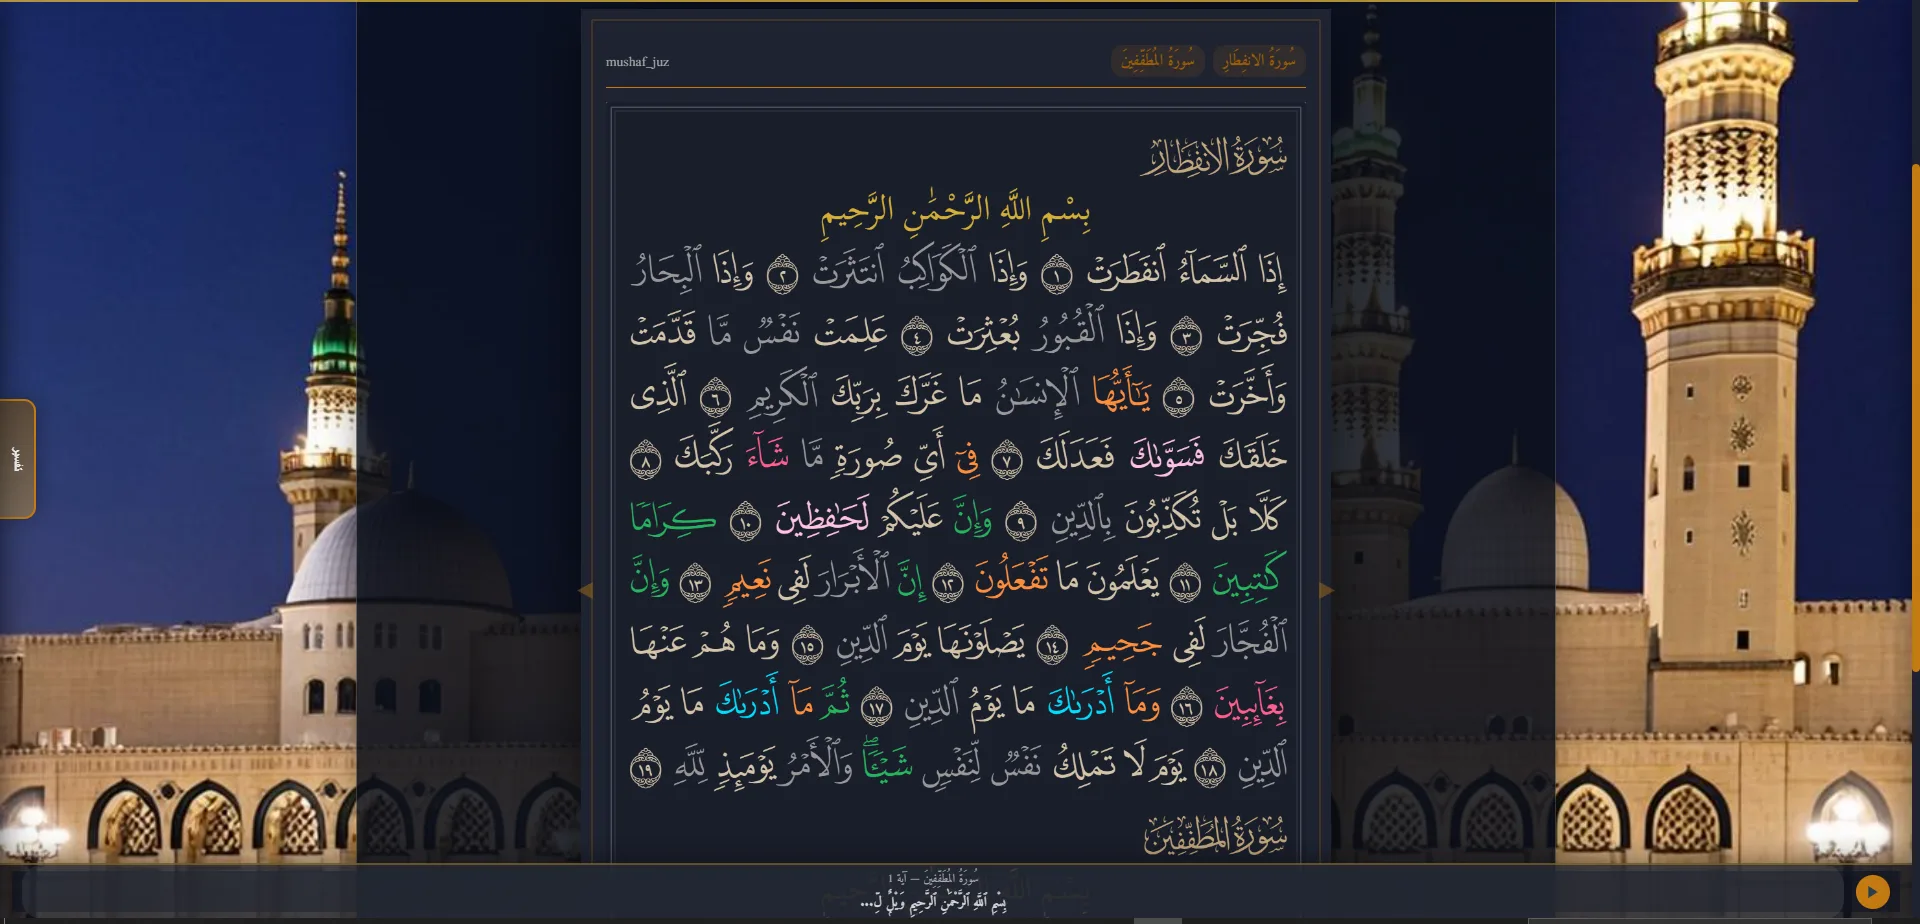 سُورَةُ الانفِطَارِ
سُورَةُ المُطَفِّفِينَ
mushaf_juz
سُورَةُ الانفِطَارِ
بِسْمِ اللَّهِ الرَّحْمَٰنِ الرَّحِيمِ
إِذَا ٱلسَّمَآءُ ٱنفَطَرَتْ ١ وَإِذَا ٱلْكَوَاكِبُ ٱنتَثَرَتْ ٢ وَإِذَا ٱلْبِحَارُ
فُجِّرَتْ ٣ وَإِذَا ٱلْقُبُورُ بُعْثِرَتْ ٤ عَلِمَتْ نَفْسٌ مَّا قَدَّمَتْ
وَأَخَّرَتْ ٥ يَـٰٓأَيُّهَا ٱلْإِنسَـٰنُ مَا غَرَّكَ بِرَبِّكَ ٱلْكَرِيمِ ٦ ٱلَّذِى
خَلَقَكَ فَسَوَّىٰكَ فَعَدَلَكَ ٧ فِىٓ أَىِّ صُورَةٍ مَّا شَآءَ رَكَّبَكَ ٨
كَلَّا بَلْ تُكَذِّبُونَ بِٱلدِّينِ ٩ وَإِنَّ عَلَيْكُمْ لَحَـٰفِظِينَ ١٠ كِرَامًا
كَـٰتِبِينَ ١١ يَعْلَمُونَ مَا تَفْعَلُونَ ١٢ إِنَّ ٱلْأَبْرَارَ لَفِى نَعِيمٍ ١٣ وَإِنَّ
ٱلْفُجَّارَ لَفِى جَحِيمٍ ١٤ يَصْلَوْنَهَا يَوْمَ ٱلدِّينِ ١٥ وَمَا هُمْ عَنْهَا
بِغَآئِبِينَ ١٦ وَمَآ أَدْرَىٰكَ مَا يَوْمُ ٱلدِّينِ ١٧ ثُمَّ مَآ أَدْرَىٰكَ مَا يَوْمُ
ٱلدِّينِ ١٨ يَوْمَ لَا تَمْلِكُ نَفْسٌ لِّنَفْسٍ شَيْـًٔا ۖ وَٱلْأَمْرُ يَوْمَئِذٍ لِّلَّهِ ١٩
سُورَةُ المُطَفِّفِينَ
تفسير
سُورَةُ المُطَفِّفِينَ — آية 1
بِسْمِ ٱللَّهِ ٱلرَّحْمَٰنِ ٱلرَّحِيمِ وَيْلٌ لِّ...